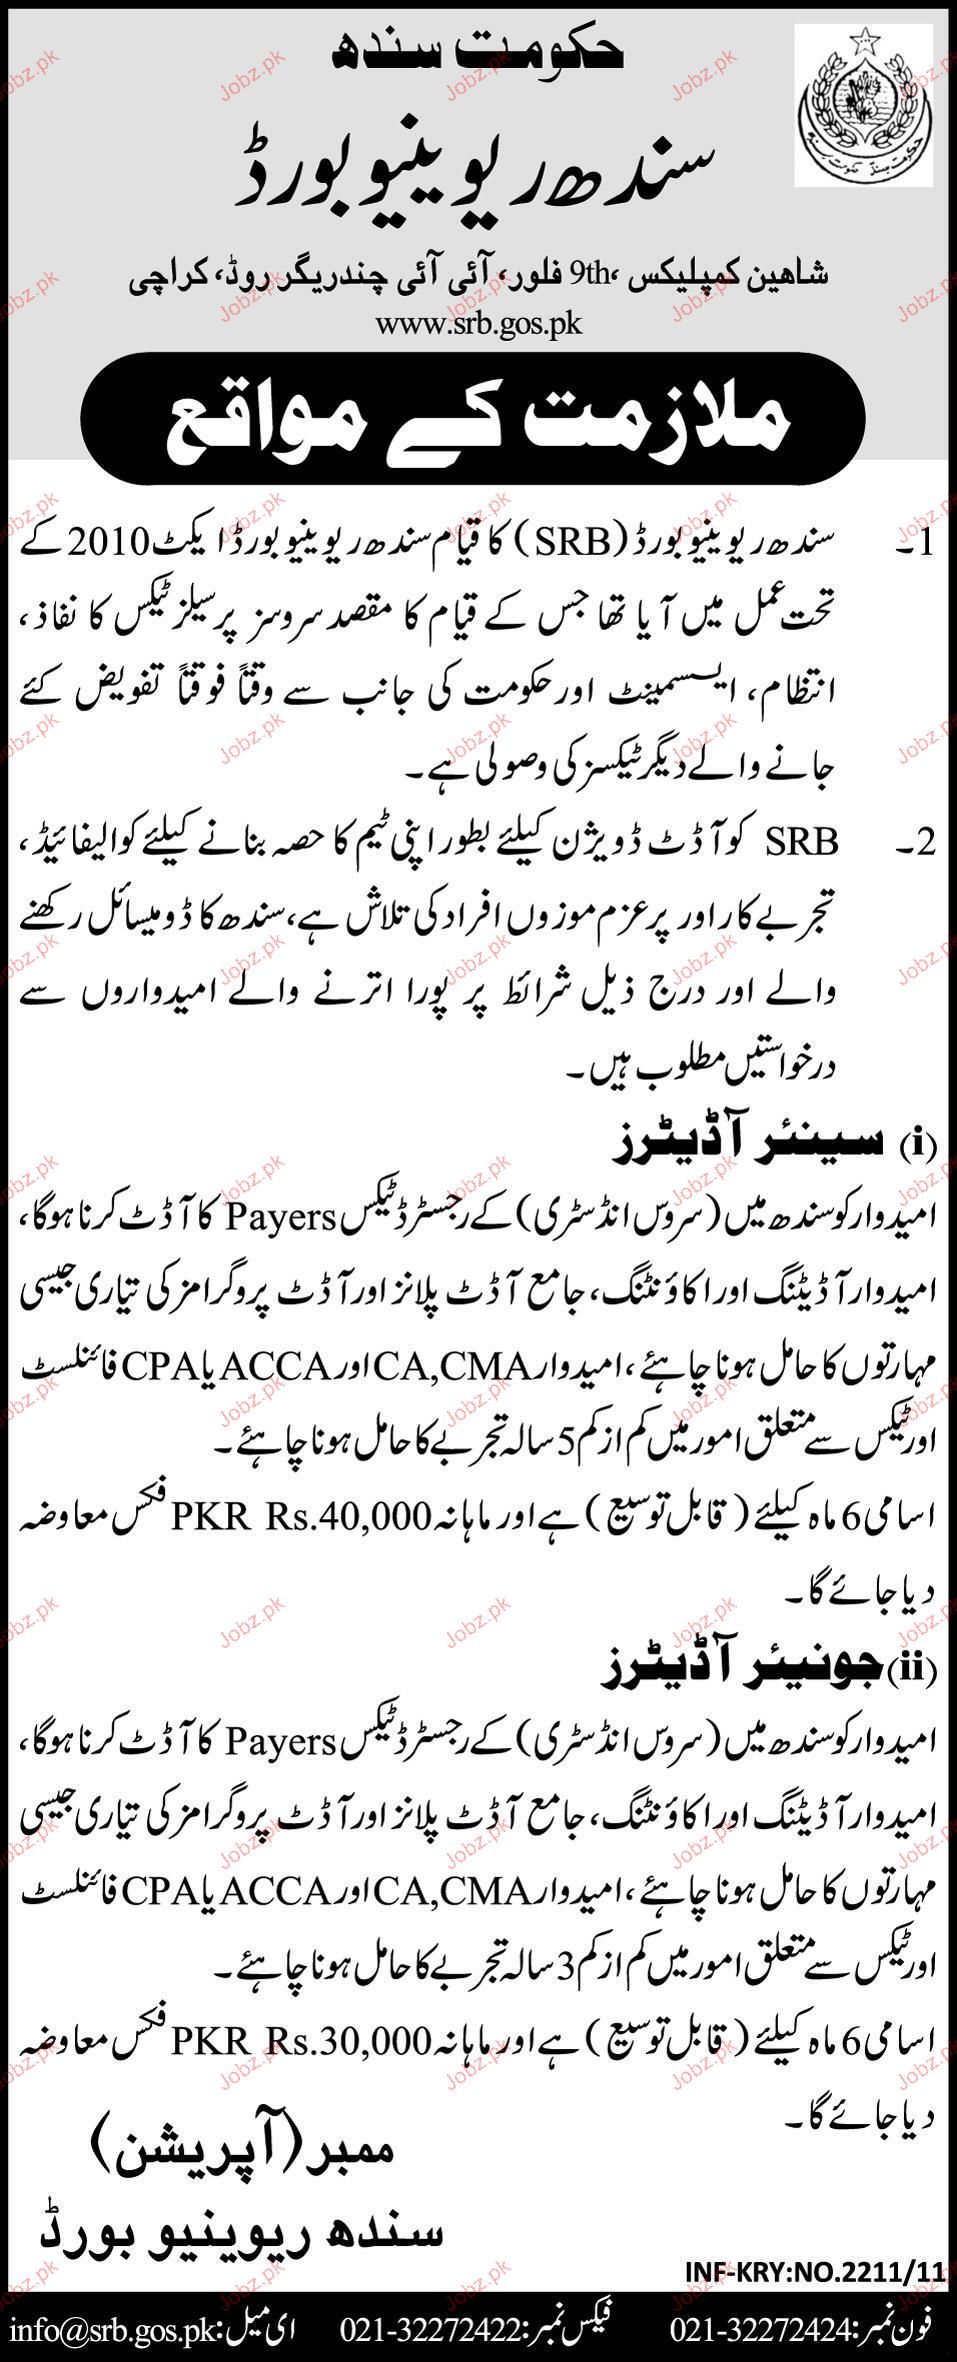 حکومت سندھ
سندھ ریوینیو بورڈ
شاھین کمپلیکس، 9th فلور، آئی آئی چندریگر روڈ، کراچی
www.srb.gos.pk
ملازمت کے مواقع
1۔ سندھ ریوینیو بورڈ (SRB) کا قیام سندھ ریوینیو بورڈ ایکٹ 2010 کے
تحت عمل میں آیا تھا جس کے قیام کا مقصد سروسز پر سیلز ٹیکس کا نفاذ،
انتظام، ایسسمینٹ اور حکومت کی جانب سے وقتاً فوقتاً تفویض کئے
جانے والے دیگر ٹیکسز کی وصولی ہے۔
2۔ SRB کو آڈٹ ڈویژن کیلئے بطور اپنی ٹیم کا حصہ بنانے کیلئے کوالیفائیڈ،
تجربے کار اور پر عزم موزوں افراد کی تلاش ہے، سندھ کا ڈومیسائل رکھنے
والے اور درج ذیل شرائط پر پورا اترنے والے امیدواروں سے
درخواستیں مطلوب ہیں۔
(i) سینئر آڈیٹرز
امیدوار کو سندھ میں (سروس انڈسٹری) کے رجسٹرڈ ٹیکس Payers کا آڈٹ کرنا ہوگا،
امیدوار آڈیٹنگ اور اکاؤنٹنگ، جامع آڈٹ پلانز اور آڈٹ پروگرامز کی تیاری جیسی
مہارتوں کا حامل ہونا چاہئے، امیدوار CA,CMA اور ACCA یا CPA فائنلسٹ
اور ٹیکس سے متعلق امور میں کم از کم 5 سالہ تجربے کا حامل ہونا چاہئے۔
اسامی 6 ماہ کیلئے (قابل توسیع) ہے اور ماہانہ PKR Rs.40,000 فکس معاوضہ
دیا جائے گا۔
(ii) جونیئر آڈیٹرز
امیدوار کو سندھ میں (سروس انڈسٹری) کے رجسٹرڈ ٹیکس Payers کا آڈٹ کرنا ہوگا،
امیدوار آڈیٹنگ اور اکاؤنٹنگ، جامع آڈٹ پلانز اور آڈٹ پروگرامز کی تیاری جیسی
مہارتوں کا حامل ہونا چاہئے، امیدوار CA,CMA اور ACCA یا CPA فائنلسٹ
اور ٹیکس سے متعلق امور میں کم از کم 3 سالہ تجربے کا حامل ہونا چاہئے۔
اسامی 6 ماہ کیلئے (قابل توسیع) ہے اور ماہانہ PKR Rs.30,000 فکس معاوضہ
دیا جائے گا۔
ممبر (آپریشن)
سندھ ریوینیو بورڈ
INF-KRY:NO.2211/11
فون نمبر: 021-32272424 فیکس نمبر: 021-32272422 ای میل: info@srb.gos.pk
Jobz.pk